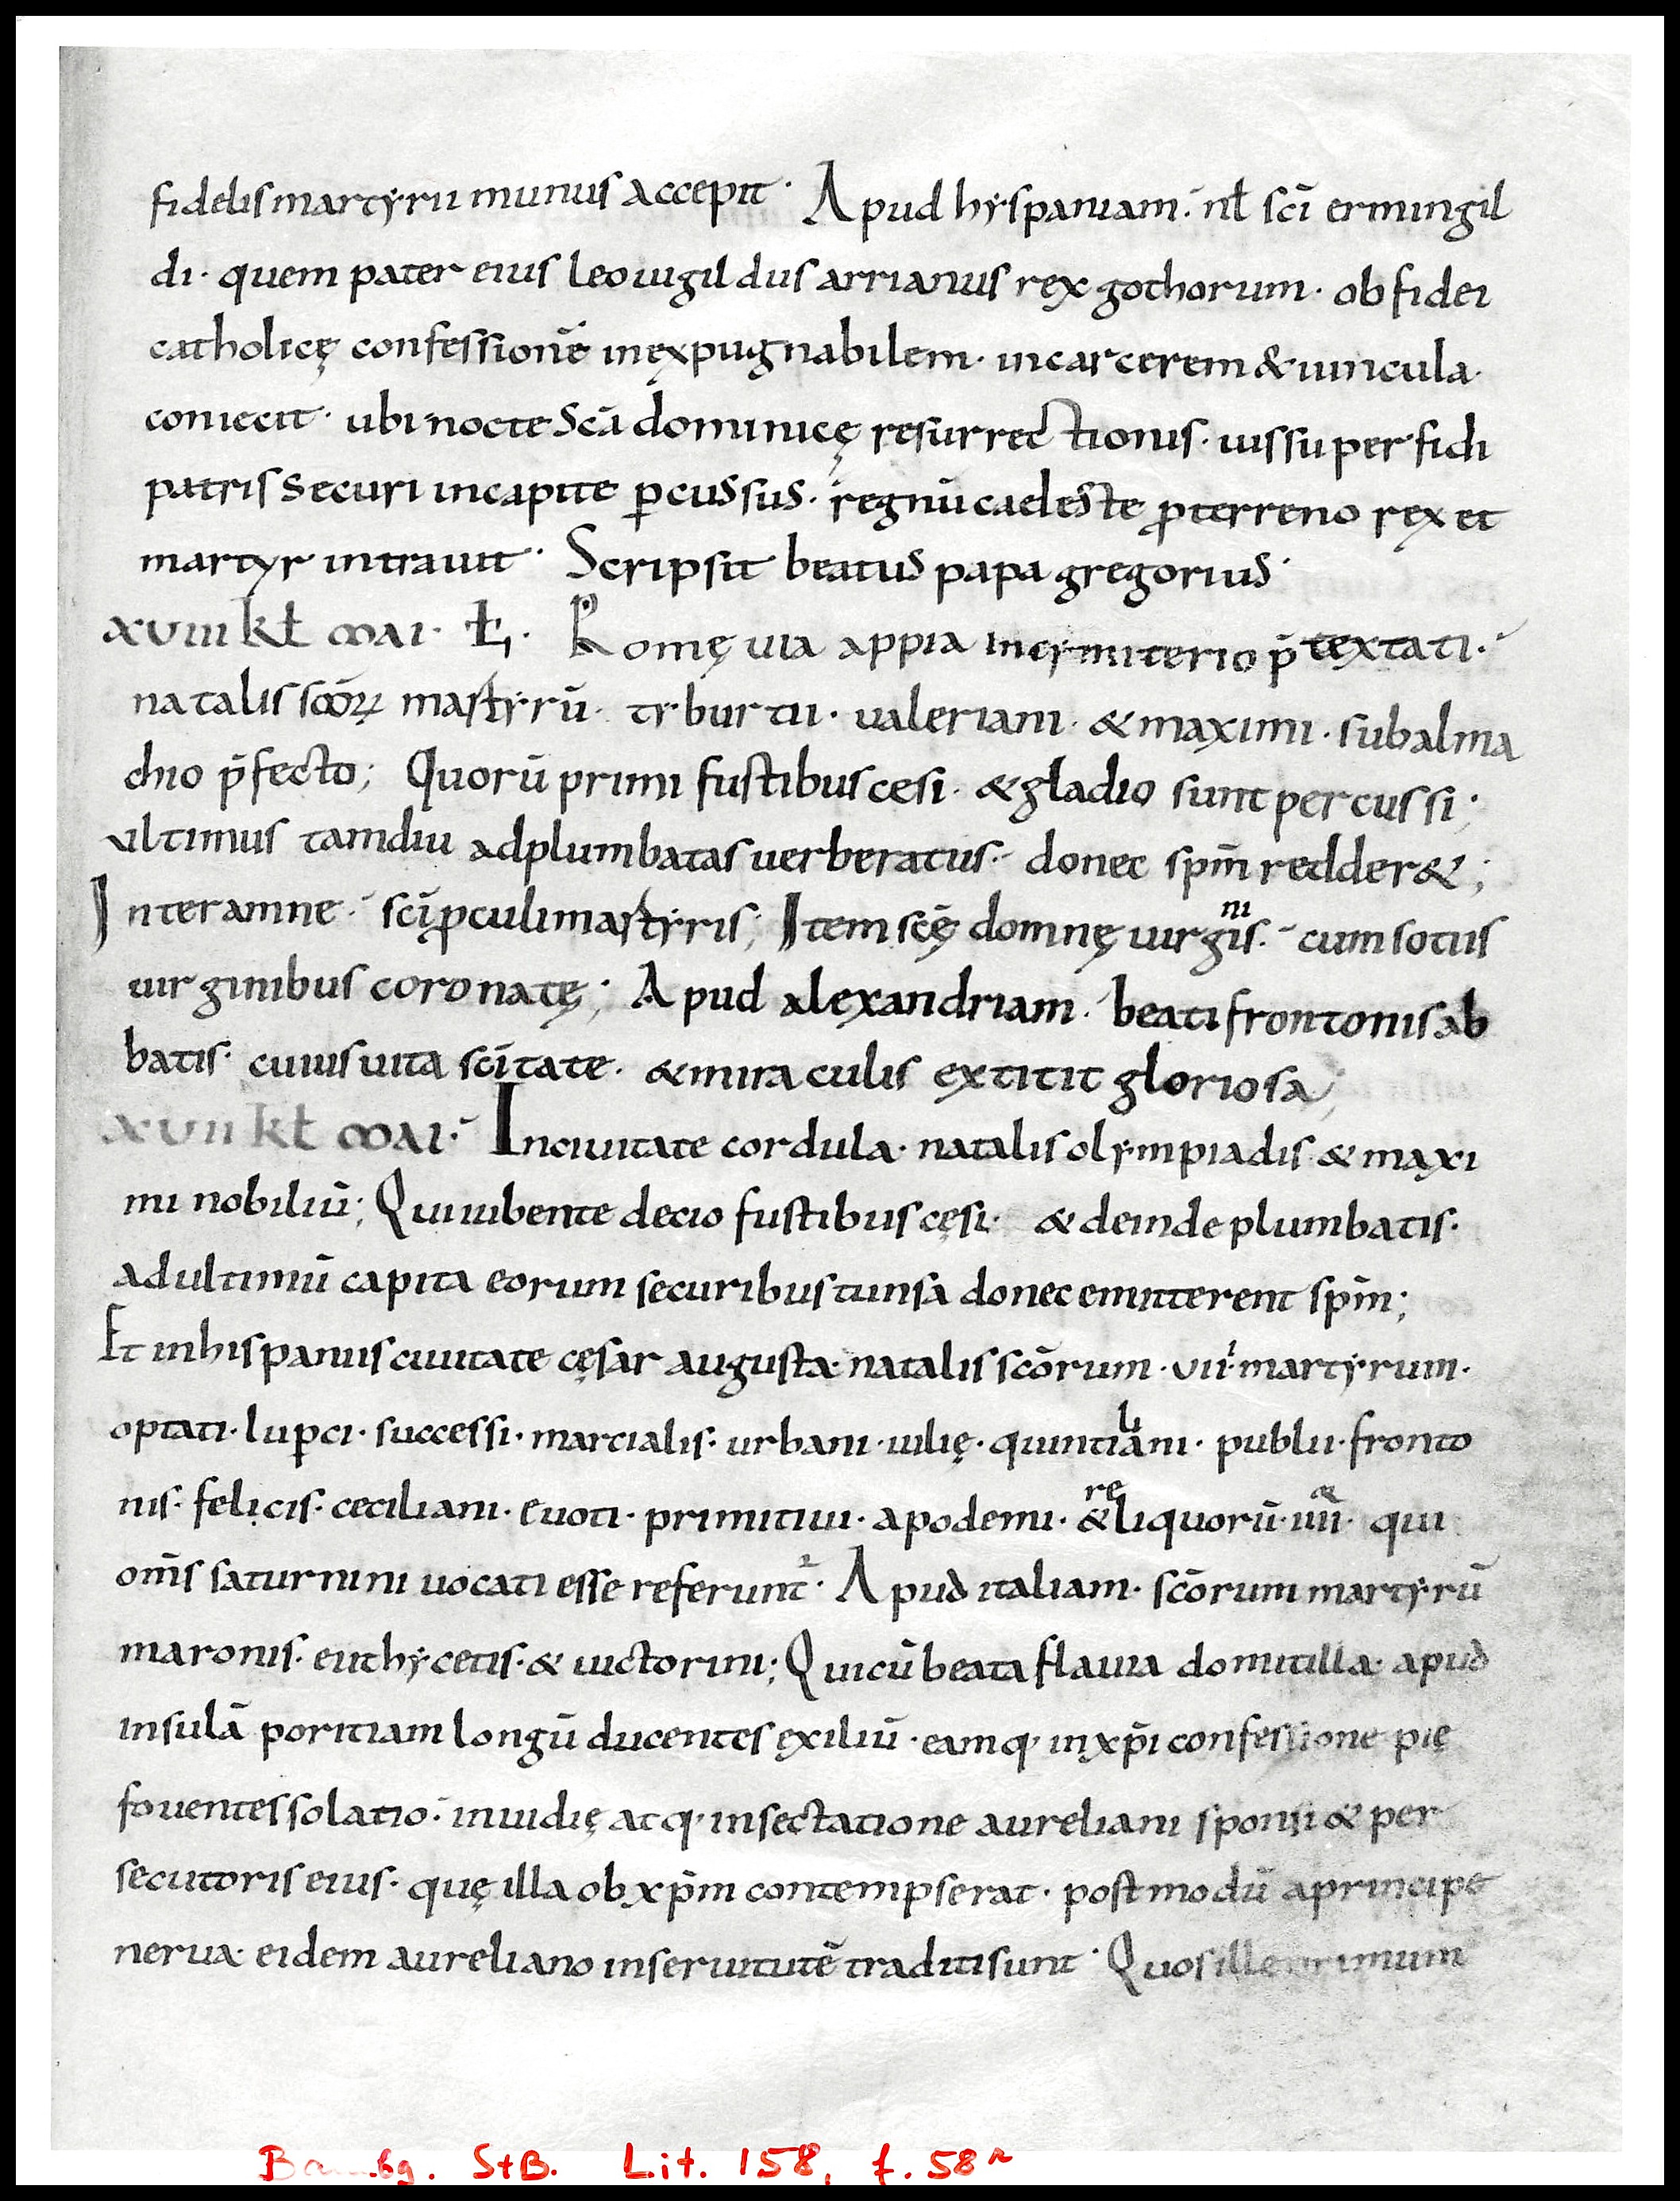 fidelis martyrii munus accepit· Apud hyspaniam· nł sc̄i ermingil
di· quem pater eius leouigildus arrianus rex gothorum· ob fidei
catholicę confessionē inexpugnabilem· in carcerem & uincula·
coniecit· ubi nocte sc̄a dominicę resurrectionis· iussu perfidi
patris securi in capite ꝑcussus· regnū caeleste ꝓ terreno rex et
martyr intrauit· Scripsit beatus papa gregorius·
xviii kł mai· Romę uia appia in cymiterio p̄textati·
natalis sc̄oꝝ martyrū· tyburtii· ualeriani· & maximi· sub alma
chio p̄fecto; Quorū primi fustibus cesi· & gladio sunt percussi;
ultimus tamdiu ad plumbatas uerberatus· donec sp̄m redder&;
Interamne· sc̄i ꝓculi martyris; Item sc̄ę domnę uirginis· cum sociis
uirginibus coronatę; Apud alexandriam· beati frontonis ab
batis· cuius uita sc̄itate· & miraculis extitit gloriosa;
xvii kł mai· In ciuitate cordula· natalis olympiadis & maxi
mi nobiliū; Qui iubente decio fustibus cęsi· & deinde plumbatis·
ad ultimū capita eorum securibus tunsa donec emitterent sp̄m;
Et in hispaniis ciuitate cęsar augusta· natalis sc̄orum· martyrum·
optati· luꝑci· successi· martialis· urbani· iulię· quintiliani· publii· fronto
nis· felicis· ceciliani· euoti· primitiui· apodemi· & reliquorū· qui
om̄s saturnini uocati esse referunt᷑· Apud italiam· sc̄orum martyrū
maronis· euthycetis· & uictorini; Qui cū beata flauia domitilla· apud
insulā poritiam longū ducentes exiliū· eamq· in xp̄i confessione pię
fouentes solatio· inuidię atq· insectatione aureliani sponsi & per
secutoris eius· quę illa ob xp̄m contempserat· postmodū a principe
nerua· eidem aureliano in seruitutē traditi sunt· Quos ille primum
Bambg. StB. Lit. 158, f. 58r